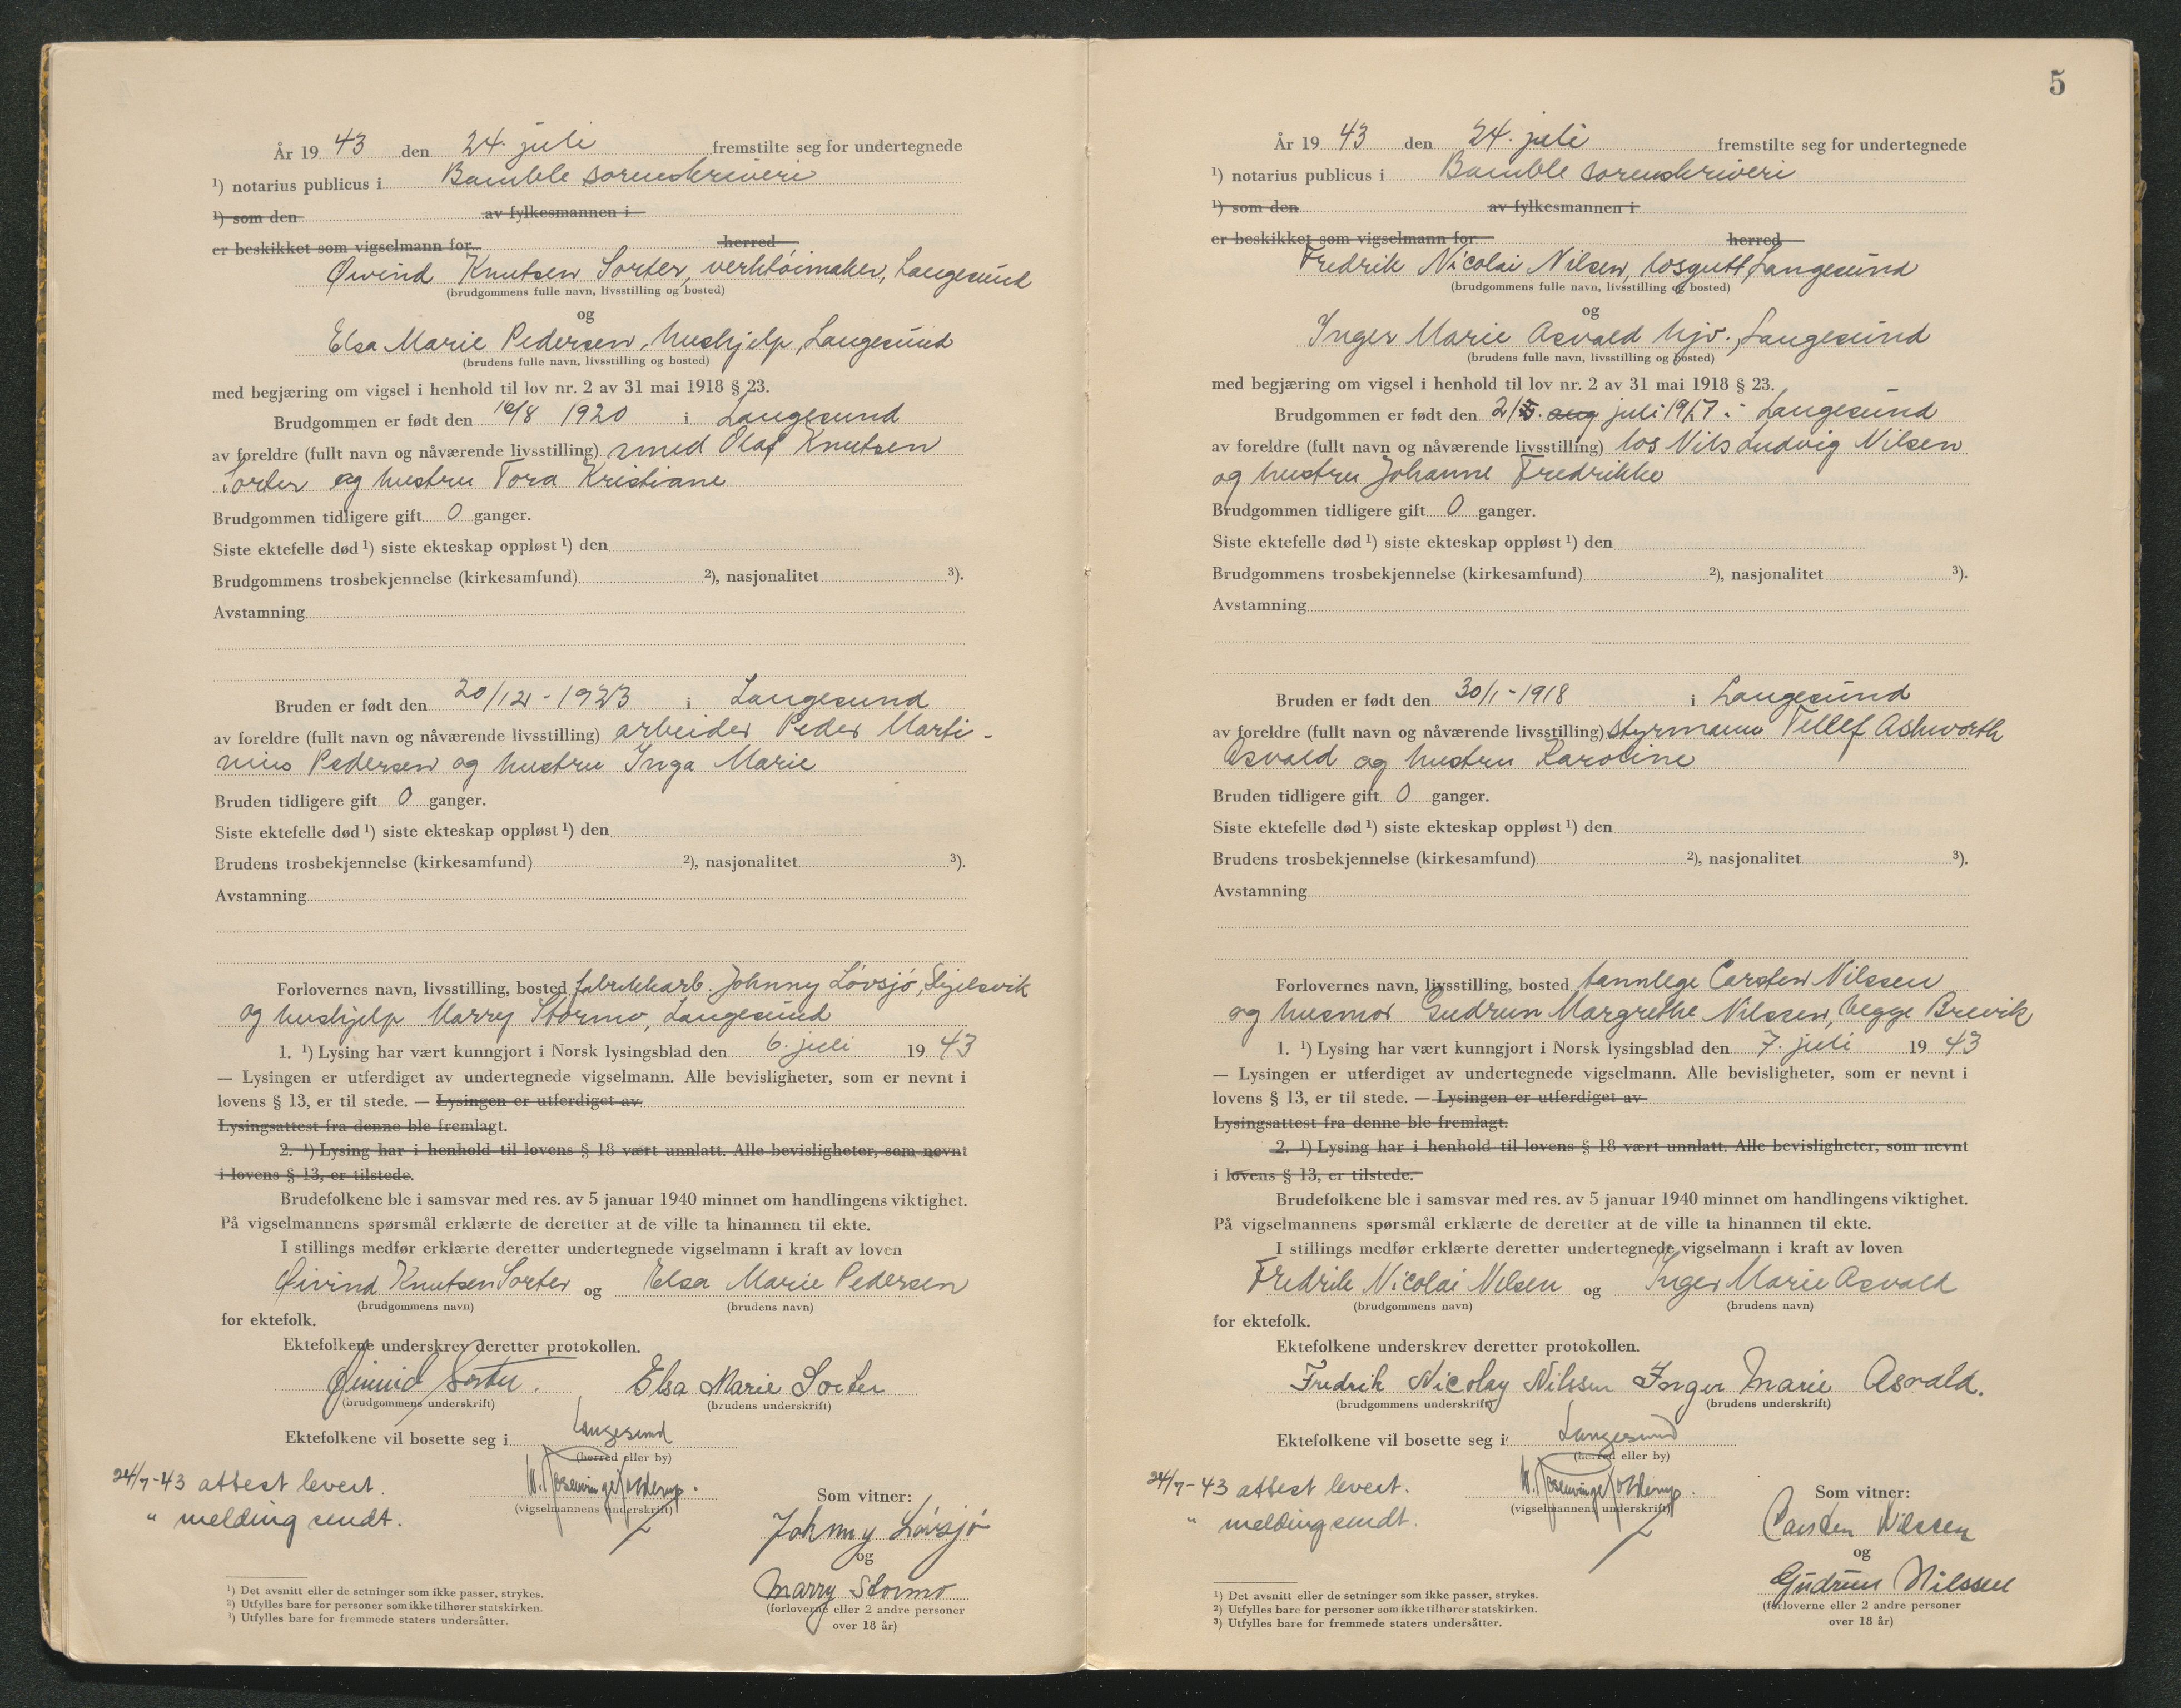 År 19 43 den 24. juli fremstilte seg for undertegnede
¹) notarius publicus i Bamble sorenskriveri
¹) som den av fylkesmannen i
er beskikket som vigselmann for herred
Øivind Knutsen Sorter, verktøimaker, Langesund
(brudgommens fulle navn, livsstilling og bosted)
og
Elsa Marie Pedersen, hushjelp, Langesund
(brudens fulle navn, livsstilling og bosted)
med begjæring om vigsel i henhold til lov nr. 2 av 31 mai 1918 § 23.
Brudgommen er født den 16/8 1920 i Langesund
av foreldre (fullt navn og nåværende livsstilling) smed Olaf Knutsen
Sorter og hustru Tora Kristiane
Brudgommen tidligere gift 0 ganger.
Siste ektefelle død ¹) siste ekteskap oppløst ¹) den
Brudgommens trosbekjennelse (kirkesamfund) ²), nasjonalitet ³).
Avstamning
Bruden er født den 20/12 - 1923 i Langesund
av foreldre (fullt navn og nåværende livsstilling) arbeider Peder Marti-
nius Pedersen og hustru Inga Marie
Bruden tidligere gift 0 ganger.
Siste ektefelle død ¹) siste ekteskap oppløst ¹) den
Brudens trosbekjennelse (kirkesamfund) ²), nasjonalitet ³).
Avstamning
Forlovernes navn, livsstilling, bosted fabrikkarb. Johnny Løvsjø, Skjelsvik
og hushjelp Marry Stormo, Langesund
1. ¹) Lysing har vært kunngjort i Norsk lysingsblad den 6. juli 19 43
— Lysingen er utferdiget av undertegnede vigselmann. Alle bevisligheter, som er nevnt i
lovens § 13, er til stede. — Lysingen er utferdiget av
Lysingsattest fra denne ble fremlagt.
2. ¹) Lysing har i henhold til lovens § 18 vært unnlatt. Alle bevisligheter, som nevnt
i lovens § 13, er tilstede.
Brudefolkene ble i samsvar med res. av 5 januar 1940 minnet om handlingens viktighet.
På vigselmannens spørsmål erklærte de deretter at de ville ta hinannen til ekte.
I stillings medfør erklærte deretter undertegnede vigselmann i kraft av loven
Øivind Knutsen Sorter og Elsa Marie Pedersen
(brudgommens navn) (brudens navn)
for ektefolk.
Ektefolkene underskrev deretter protokollen.
Øivind Sorter. Elsa Marie Sorter
(brudgommens underskrift) (brudens underskrift)
Ektefolkene vil bosette seg i Langesund
(herred eller by)
24/7-43 attest levert.
" melding sendt.
W. Rosenvinge Kolderup.
(vigselmannens underskrift)
Som vitner:
Johnny Løvsjø
og
Marry Stormo
(forloverne eller 2 andre personer
over 18 år)
¹) Det avsnitt eller de setninger som ikke passer, strykes.
²) Utfylles bare for personer som ikke tilhører statskirken.
³) Utfylles bare for fremmede staters undersåtter.
5
År 19 43 den 24. juli fremstilte seg for undertegnede
¹) notarius publicus i Bamble sorenskriveri
¹) som den av fylkesmannen i
er beskikket som vigselmann for herred
Fredrik Nicolai Nilsen, losgutt, Langesund
(brudgommens fulle navn, livsstilling og bosted)
og
Inger Marie Asvald hjv., Langesund
(brudens fulle navn, livsstilling og bosted)
med begjæring om vigsel i henhold til lov nr. 2 av 31 mai 1918 § 23.
Brudgommen er født den 21. aug juli 1917 i Langesund
av foreldre (fullt navn og nåværende livsstilling) los Nils Ludvig Nilsen
og hustru Johanne Fredrikke
Brudgommen tidligere gift 0 ganger.
Siste ektefelle død ¹) siste ekteskap oppløst ¹) den
Brudgommens trosbekjennelse (kirkesamfund) ²), nasjonalitet ³).
Avstamning
Bruden er født den 30/1 - 1918 i Langesund
av foreldre (fullt navn og nåværende livsstilling) styrmann Tellef Ashworth
Asvald og hustru Karoline
Bruden tidligere gift 0 ganger.
Siste ektefelle død ¹) siste ekteskap oppløst ¹) den
Brudens trosbekjennelse (kirkesamfund) ²), nasjonalitet ³).
Avstamning
Forlovernes navn, livsstilling, bosted tannlege Carsten Nilssen
og husmor Gudrun Margrethe Nilssen, begge Brevik
1. ¹) Lysing har vært kunngjort i Norsk lysingsblad den 7. juli 19 43
— Lysingen er utferdiget av undertegnede vigselmann. Alle bevisligheter, som er nevnt i
lovens § 13, er til stede. — Lysingen er utferdiget av
Lysingsattest fra denne ble fremlagt.
2. ¹) Lysing har i henhold til lovens § 18 vært unnlatt. Alle bevisligheter, som nevnt
i lovens § 13, er tilstede.
Brudefolkene ble i samsvar med res. av 5 januar 1940 minnet om handlingens viktighet.
På vigselmannens spørsmål erklærte de deretter at de ville ta hinannen til ekte.
I stillings medfør erklærte deretter undertegnede vigselmann i kraft av loven
Fredrik Nicolai Nilsen og Inger Marie Asvald
(brudgommens navn) (brudens navn)
for ektefolk.
Ektefolkene underskrev deretter protokollen.
Fredrik Nicolay Nilssen Inger Marie Asvald.
(brudgommens underskrift) (brudens underskrift)
Ektefolkene vil bosette seg i Langesund
(herred eller by)
24/7-43 attest levert.
" melding sendt.
W. Rosenvinge Kolderup.
(vigselmannens underskrift)
Som vitner:
Carsten Nilssen
og
Gudrun Nilssen
(forloverne eller 2 andre personer
over 18 år)
¹) Det avsnitt eller de setninger som ikke passer, strykes.
²) Utfylles bare for personer som ikke tilhører statskirken.
³) Utfylles bare for fremmede staters undersåtter.